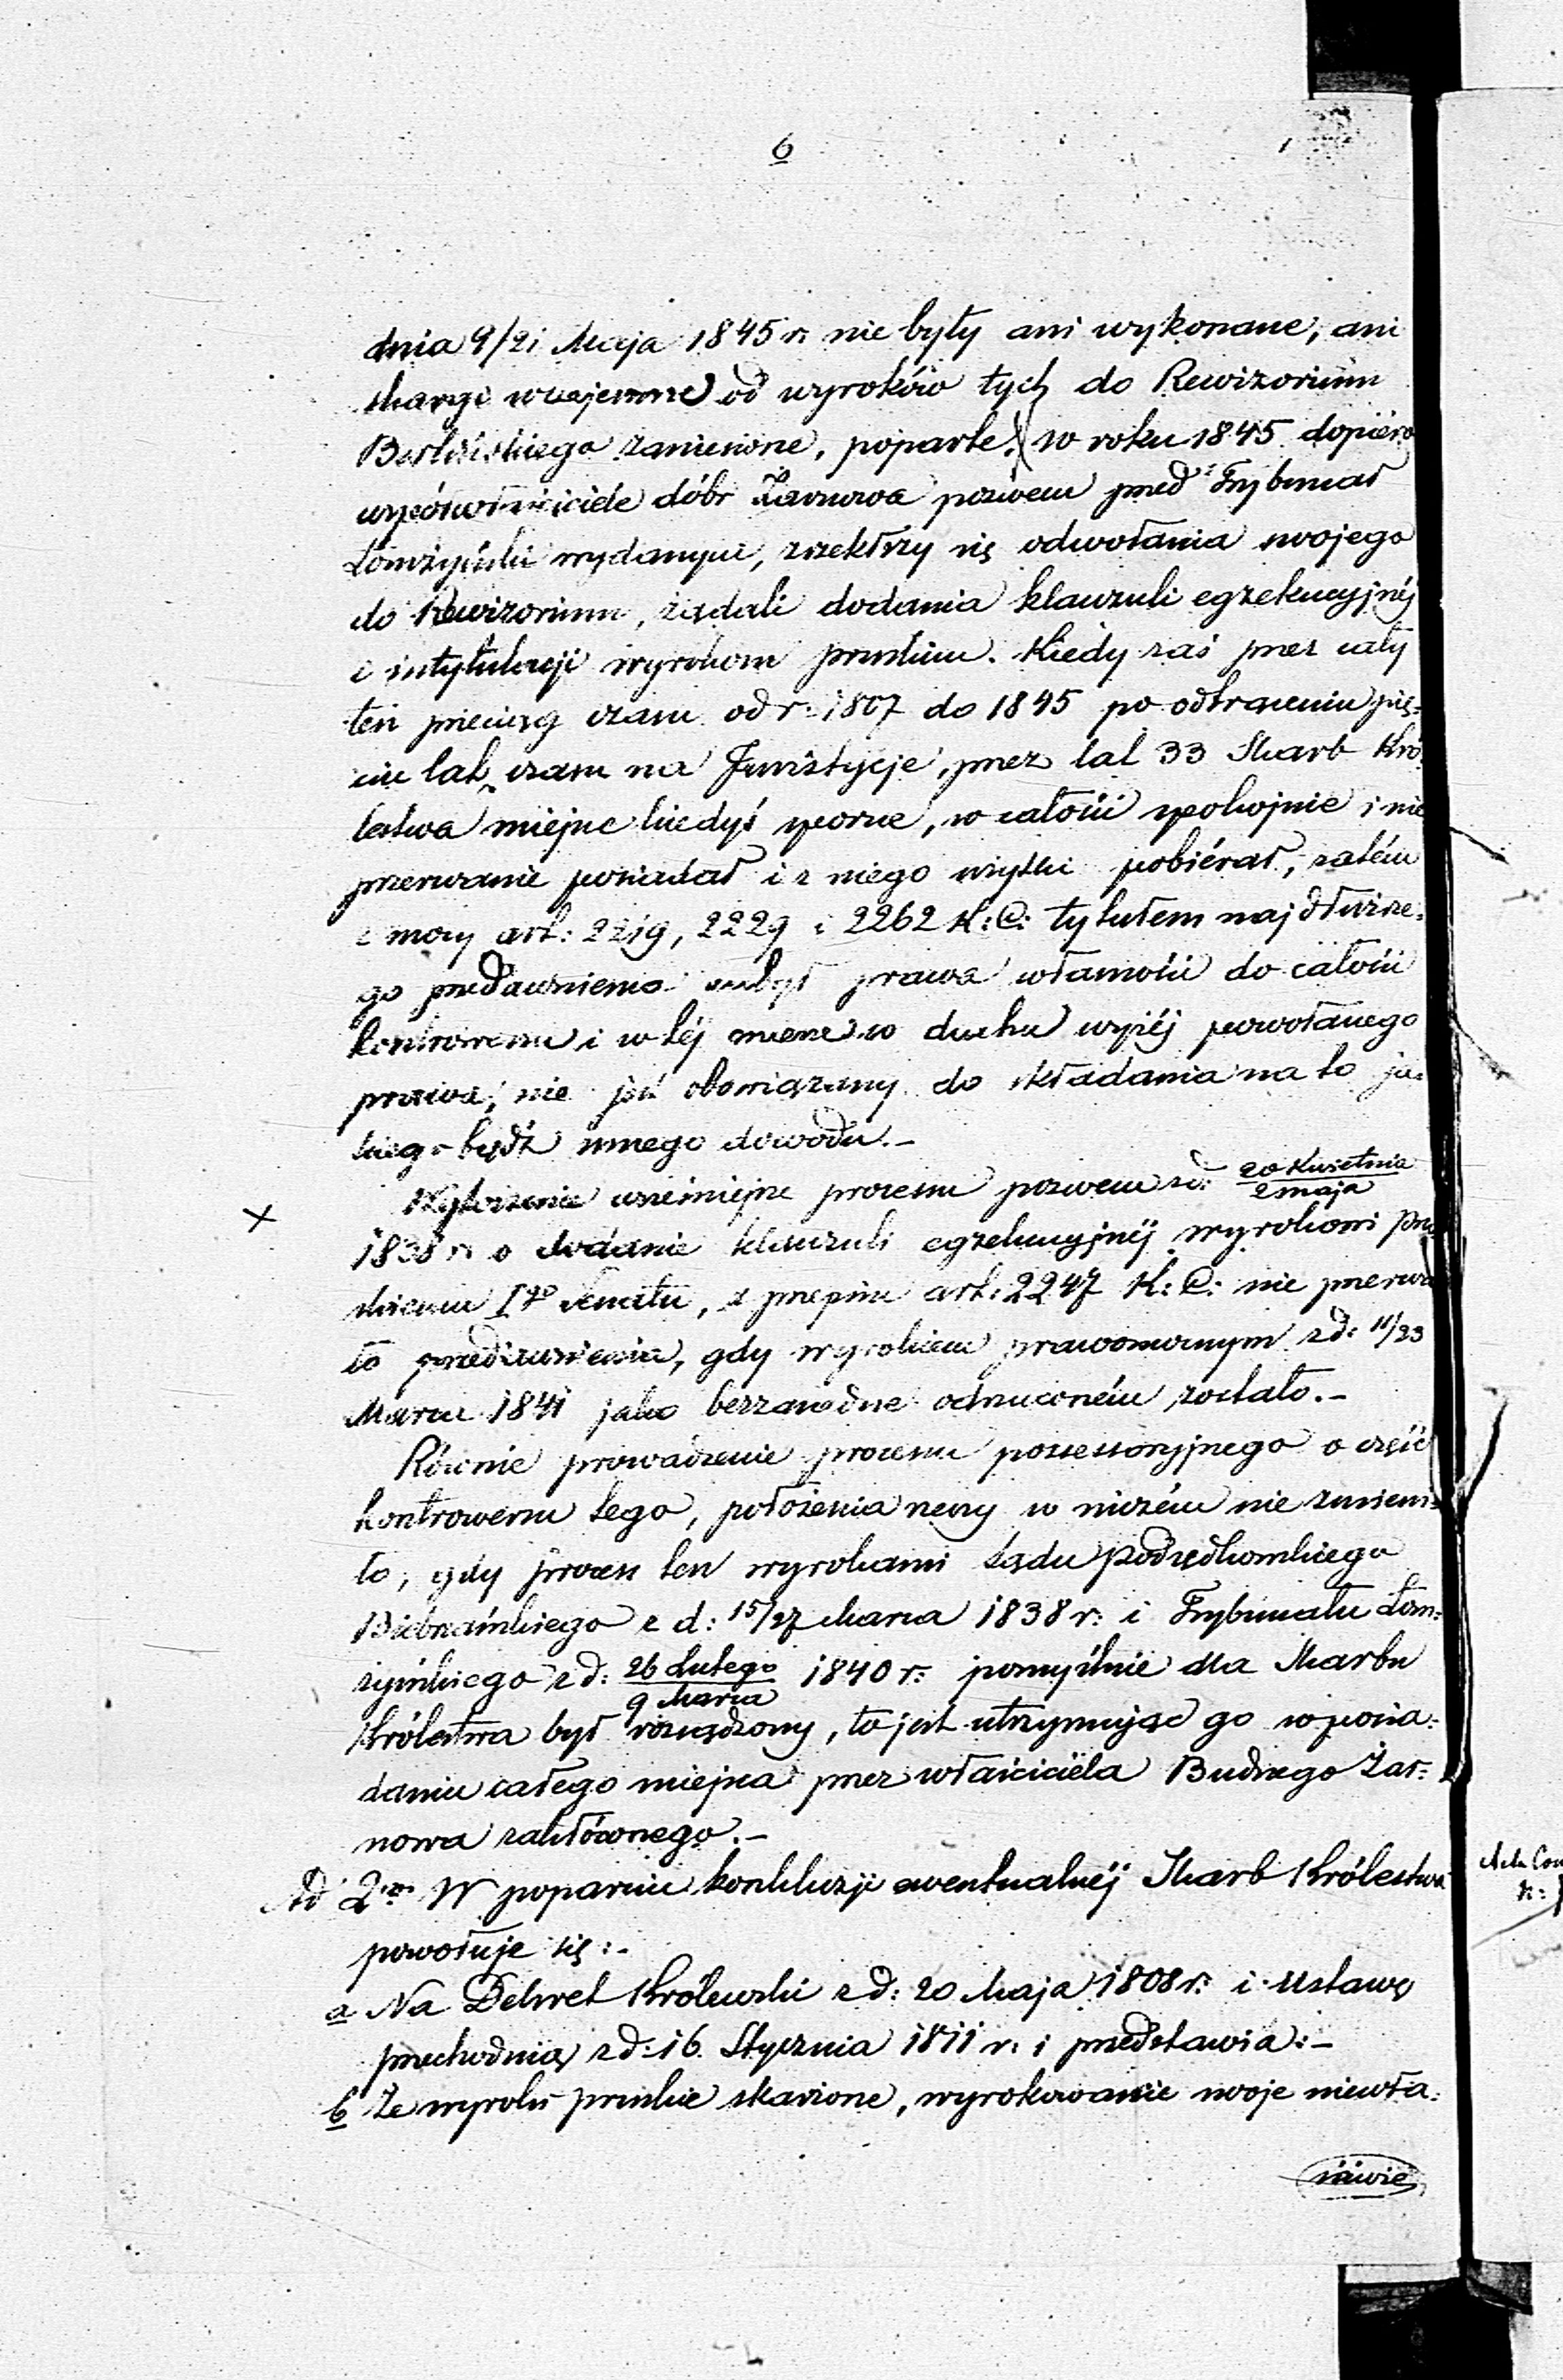 6
dnia 9/21 Maja 1845 r: nie były ani wykonane, ani
skargi wzajemne od wyroków tych do Rewizorium
Berlińskiego zaniesione, poparte. w roku 1845 dopiéro
współwłaściciele dóbr Żarnowa pozwem przed Trybunał
Łomżyński wydanym, zrzekłszy się odwołania swojego
do Rewizorium, żądali dodania klauzuli egzekucyjnéj
i intytulacji wyrokom pruskim. Kiedy zaś przez cały
ten przeciąg czasu od r: 1807 do 1845 po odtrąceniu pię=
ciu lat czasu na Juristycje, przez lat 33 Skarb Kró
lestwa miejsce kiedyś sporne, w całości spokojnie i nie
przerwanie posiadał i z niego użytki pobiérał, zatém
z mocy art: 2219, 2229 i 2262 K: C: tytułem najdłuższe=
go przedawnienia nabył prawa własności do całości
kontrowersu i w téj mierze w duchu wyżéj powołanego
prawa, nie jest obowiązany do składania na to ja=
kiego bądź innego dowodu.-
Wytoczenie wcześniejsze procesu pozwem z d: 20 Kwietnia / 2 maja
1838 r: o dodanie klauzuli egzekucyjnéj wyrokowi pru
skiemu Igo Senatu, z przepisu art: 2247 K: C: nie przerwa
ło przedawnienia, gdy wyrokiem prawomocnym z d: 11/23
Marca 1841 jako bezzasadne odrzuconém zostało.-
Równie prowadzenie procesu possessoryjnego o część
kontrowersu tego, położenia rzeczy w niczém nie zmieni=
ło, gdy proces ten wyrokami Sądu Podsędkowskiego
Biebrzańskiego z d: 15/27 Marca 1838 r: i Trybunału Łom=
żyńskiego z d: 26 Lutego / 9 Marca 1840 r: pomyślnie dla Skarbu
Królestwa był rozsądzony, to jest utrzymując go w posia=
daniu całego miejsca przez właściciela Budnego Żar=
nowa zakłóconego.-
Ad 2m W poparciu konkluzji ewentualnéj Skarb Królestwa
powołuje się:-
a Na Dekret Królewski z d: 20 Maja 1808 r: i Ustawę
przechodnią z d: 16 Stycznia 1811 r: i przedstawia:-
b Że wyroki pruskie skarżone, wyrokowanie swoje niewła=
ściwie